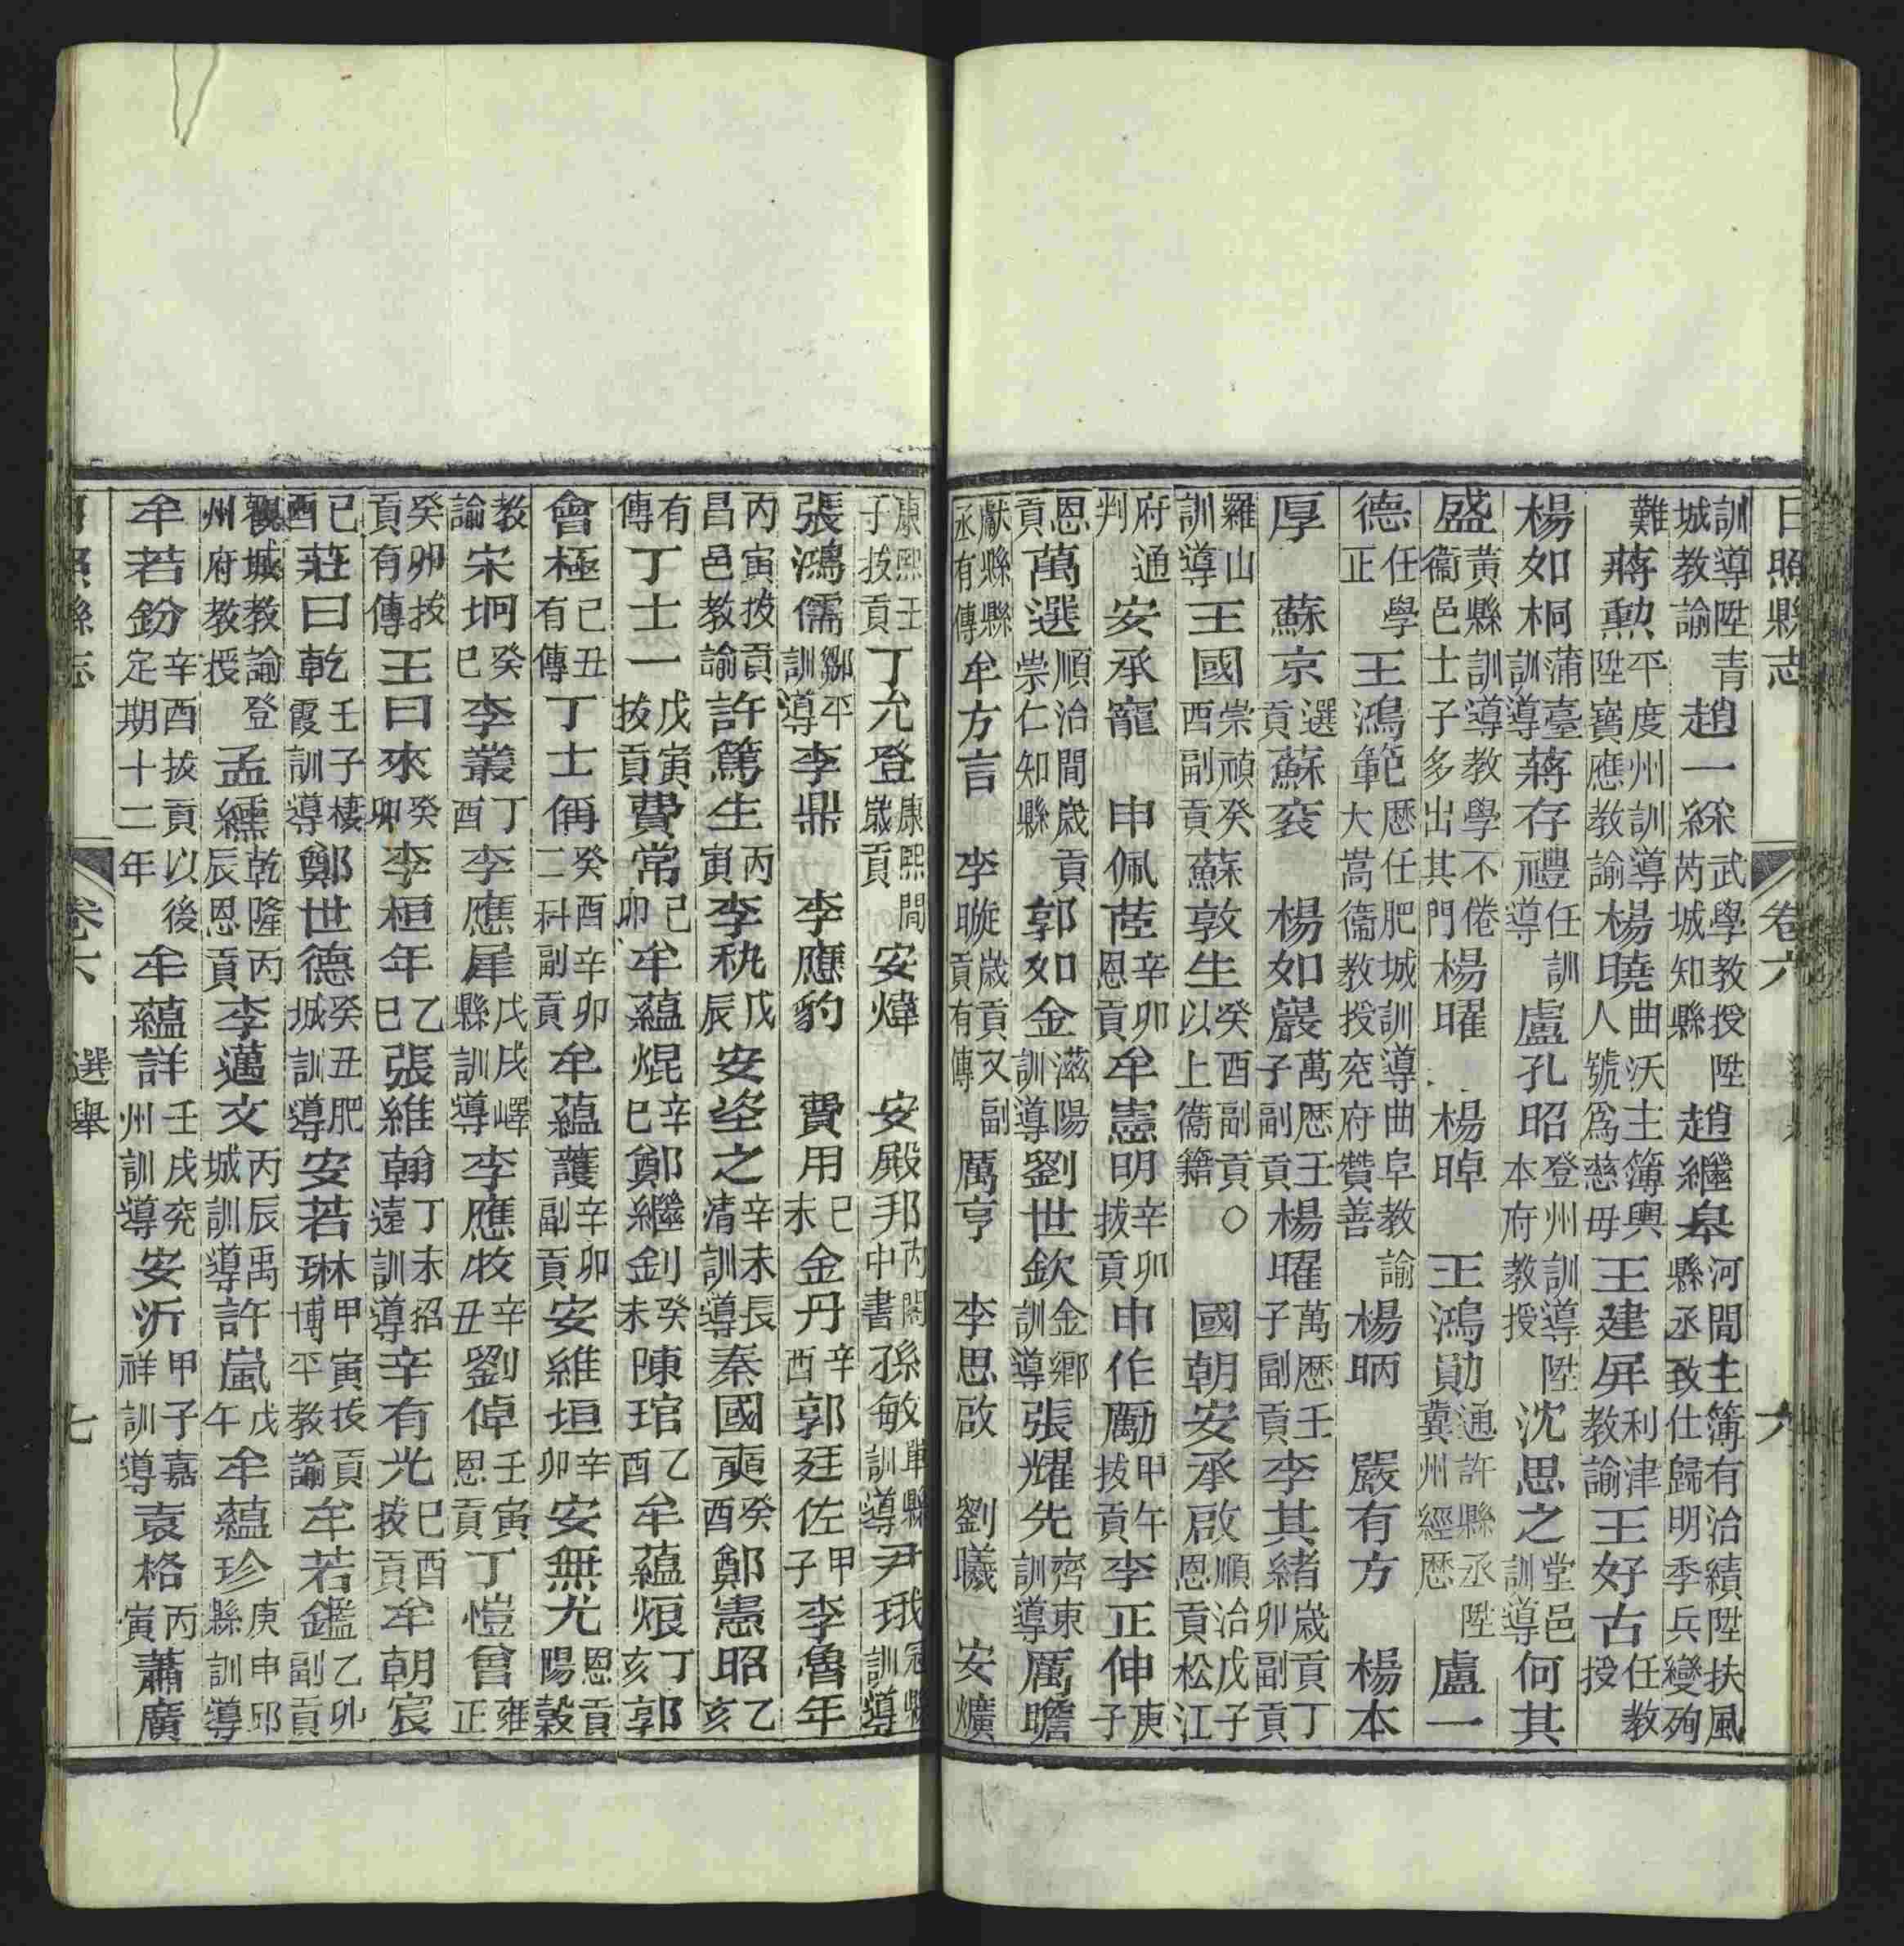 日照縣志 卷六 六
訓導陞青城教諭 趙一綵 武學教授陞芮城知縣 趙繼皋 河間主簿有治績陞扶風縣丞致仕歸明季兵變殉
難 蔣勲 平度州訓導陞寶應教諭 楊曉 曲沃主簿輿人號爲慈母 王建屏 利津教諭 王好古 任教授
楊如桐 蒲臺訓導 蔣存禮 豐任訓導 盧孔昭 登州訓導陞本府教授 沈思之 堂邑訓導 何其
盛 黃縣訓導教學不倦衞邑士子多出其門 楊曜 楊晫 王鴻勛 通許縣丞陞冀州經歷 盧一
德 任學正 王鴻範 歷任肥城訓導曲阜教諭大嵩衞教授兖府贊善 楊昞 嚴有方 楊本
厚 蘇京 選貢 蘇袞 楊如巖 萬歷壬子副貢 楊曜 萬歷壬子副貢 李其緒 歲貢丁卯副貢
羅山訓導 王國西 崇禎癸副貢 蘇敦生 癸酉副貢以上衞籍 ○ 國朝 安承啟 順治戊子恩貢松江
府通判 安承寵 申佩茝 辛卯恩貢 牟憲明 辛卯拔貢 申作勵 甲午拔貢 李正伸 庚子
恩貢 萬選 順治間歲貢崇仁知縣 郭如金 滋陽訓導 劉世欽 金鄉訓導 張耀先 齊東訓導 厲瞻
獻縣縣丞有傳 牟方言 李暶 歲貢又副貢有傳 厲亨 李思啟 劉曦 安爌
康熙壬子拔貢 丁允登 康熙間歲貢 安煒 安殿邦 內閣中書 孫敏 單縣訓導 尹珴 冠縣訓導
張鴻儒 鄒平訓導 李鼎 李應豹 費用 己未 金丹 辛酉 郭廷佐 甲子 李魯年
丙寅拔貢昌邑教諭 許篤生 丙寅 李秇 戊辰 安垐之 辛未長清訓導 秦國奭 癸酉 鄭憲昭 乙亥
有傳 丁士一 戊寅拔貢 費常 己卯 牟蘊焜 辛巳 鄭繼釗 癸未 陳琯 乙酉 牟蘊烺 丁亥 郭
會極 己丑有傳 丁士偁 癸酉辛卯二科副貢 牟蘊護 辛卯副貢 安維垣 辛卯 安無尤 恩貢陽穀
教諭 宋坰 癸巳 李叢 丁酉 李應犀 戊戌嶧縣訓導 李應牧 辛丑 劉倬 壬寅恩貢 丁愷曾 雍正
癸卯拔貢有傳 王曰來 癸卯 李桓年 乙巳 張維翰 丁未招遠訓導 辛有光 己酉拔貢 牟朝宸
己酉 莊曰乾 壬子棲霞訓導 鄭世德 癸丑肥城訓導 安若琳 甲寅拔貢博平教諭 牟若鑑 乙卯副貢
觀城教諭登州府教授 孟纁 乾隆丙辰恩貢 李邁文 丙辰禹城訓導 許嵐 戊午 牟蘊珍 庚申邱縣訓導
牟若鈖 辛酉拔貢以後定期十二年 牟蘊詳 壬戌兖州訓導 安沂 甲子嘉祥訓導 袁格 丙寅 蕭廣
日照縣志 卷六 選舉 七